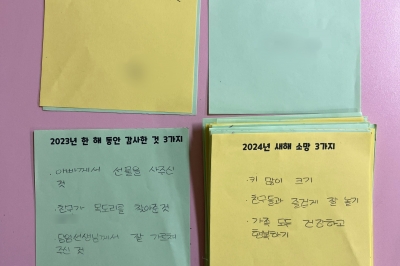 2023년 한 해 동안 감사한 것 3가지
· 아빠께서 선물을 사주신
것
· 친구가 목도리를 찾아준것
· 담임선생님께서 잘 가르쳐
주신 것
2024년 새해 소망 3가지
· 키 많이 크기
· 친구들과 즐겁게 잘 놀기
· 가족 모두 건강하고
행복하기